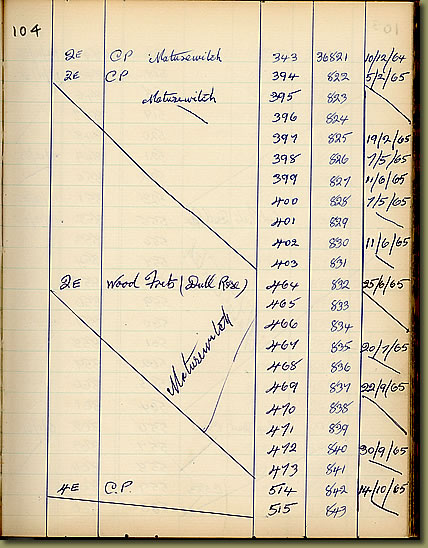 104
2E C.P. Maturewitch 343 36821 10/12/64
2E C.P. 394 822 5/2/65
Maturewitch 395 823
396 824
397 825 19/2/65
398 826 7/5/65
399 827 11/6/65
400 828 7/5/65
401 829
402 830 11/6/65
403 831
2E Wood Frets (Dull Rose) 464 832 25/6/65
465 833
466 834
Maturewitch
467 835 20/7/65
468 836
469 837 22/9/65
470 838
471 839
472 840 30/9/65
473 841
4E C.P. 514 842 14/10/65
515 843